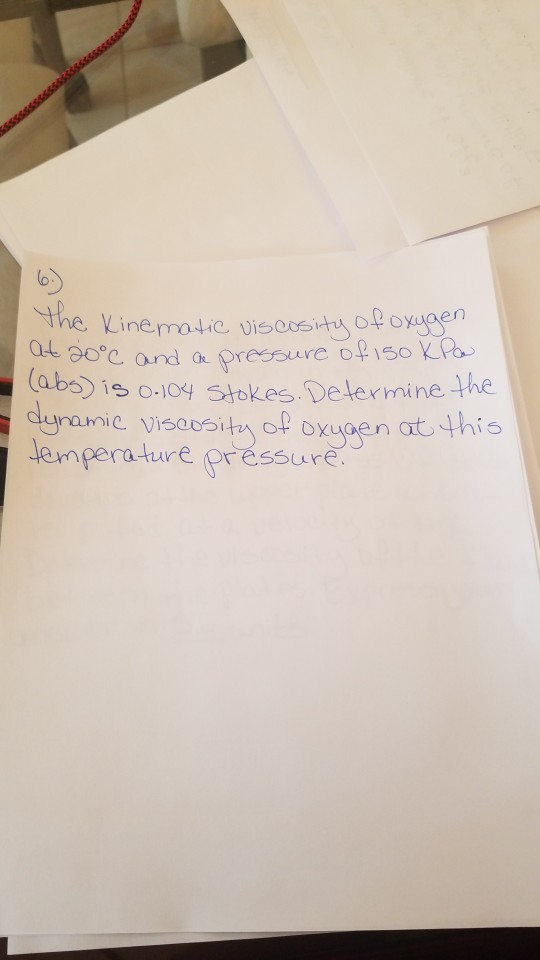 6.)
The Kinematic viscosity of oxygen
at 20°C and a pressure of 150 KPa
(abs) is 0.104 Stokes. Determine the
dynamic viscosity of oxygen at this
temperature pressure.